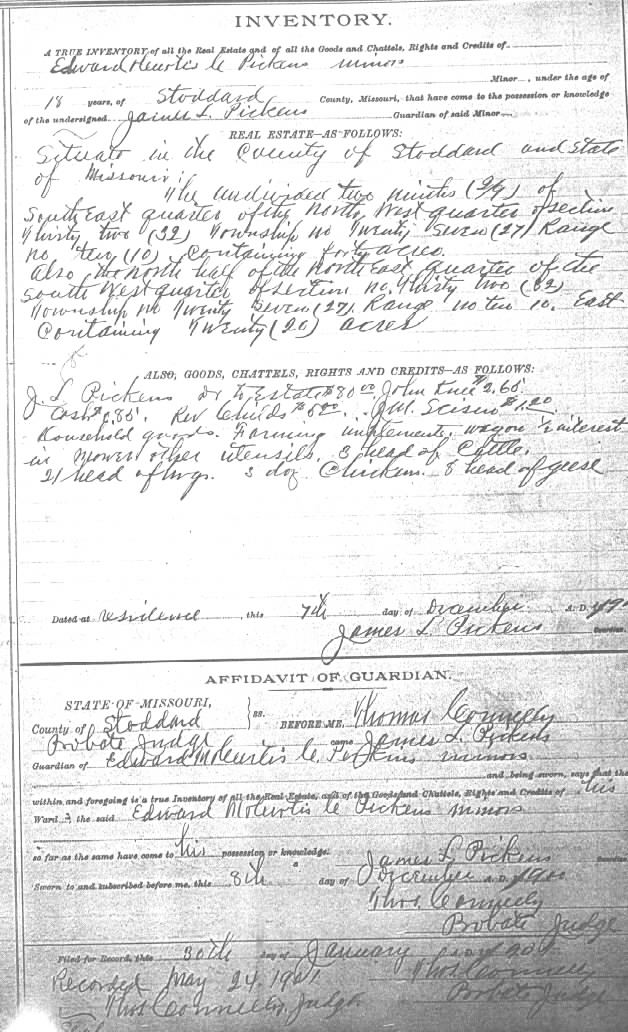 INVENTORY.
A TRUE INVENTORY of all the Real Estate and of all the Goods and Chattels, Rights and Credits of
Edward McCurtis C Pickens minors
Minor , under the age of
18 years, of Stoddard County, Missouri, that have come to the possession or knowledge
of the undersigned James L. Pickens Guardian of said Minor
REAL ESTATE—AS FOLLOWS:
Situate in the County of Stoddard and State
of Missouri
The undivided two ninths (2/9) of
South East quarter of the North West quarter of section
Thirty two (32) Township no Twenty Seven (27) Range
no ten (10) Containing forty acres.
Also the north half of the North East quarter of the
South West quarter of section no. Thirty two (32)
Township no Twenty Seven (27) Range no ten 10. East
Containing Twenty (20) acres
ALSO, GOODS, CHATTELS, RIGHTS AND CREDITS—AS FOLLOWS:
J. L Pickens Dr to Estate $80 00 John $2.65
Cash Rev Childs $ J.M. $1.20
Household goods. Farming implements, wagon 1/2 interest
in mower other utensils. 3 head of Cattle.
21 head of hogs. 3 doz. Chickens. 8 head of geese
Dated at residence , this 7th day of December A. D. 
James L. Pickens Guardian.
AFFIDAVIT OF GUARDIAN.
STATE OF MISSOURI, ss.
County of Stoddard BEFORE ME, Thomas Connelly
Probate Judge came James L. Pickens
Guardian of Edward McCurtis C. Pickens minors
and being sworn, says that the
within and foregoing is a true Inventory of all the Real Estate, and of the Goods and Chattels, Rights and Credits of his
Ward s the said Edward McCurtis C Pickens minors
so far as the same have come to his possession or knowledge.
James L. Pickens Guardian
Sworn to and subscribed before me, this 8th day of December A. D. 1900
Thos. Connelly
Probate Judge
Filed for Record, this 30th day of January
Thos Connelly
Recorded May 24, 1901 Probate Judge
Thos Connelly, Judge